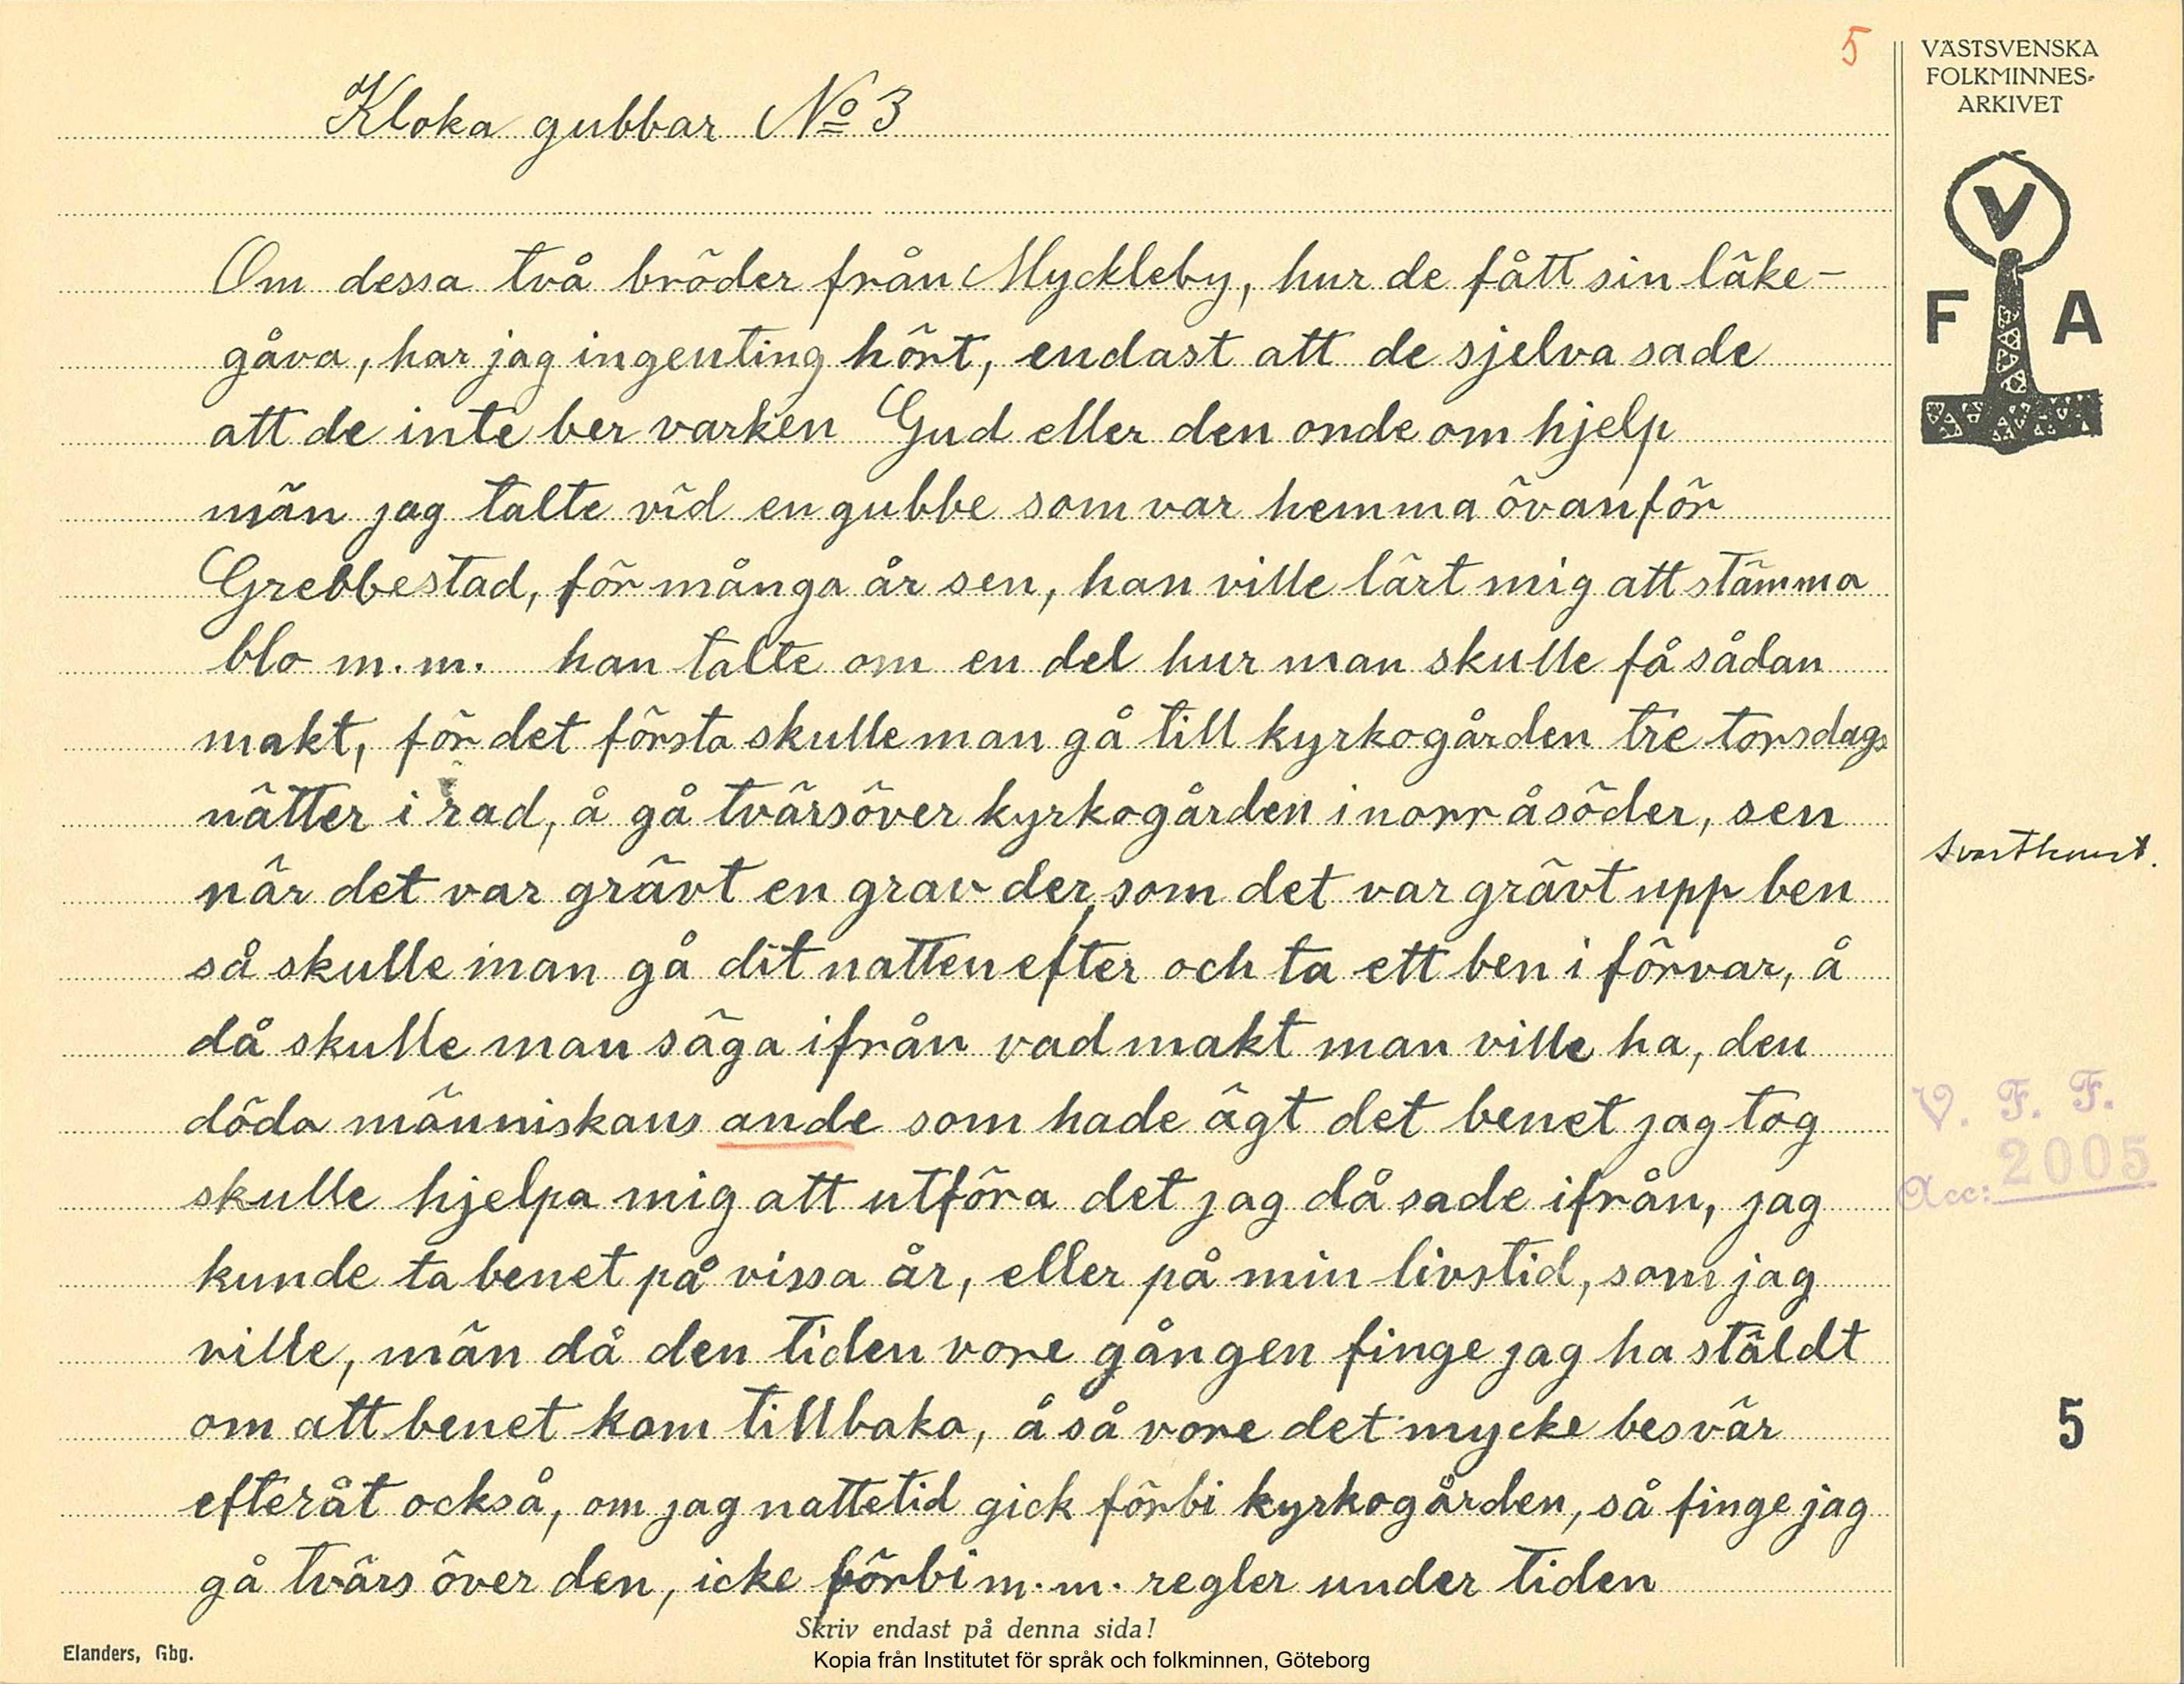 5
VÄSTSVENSKA
FOLKMINNES-
ARKIVET
V
F A
Kloka gubbar No 3
Om dessa två bröder från Myckleby, hur de fått sin läke-
gåva, har jag ingenting hört, endast att de sjelva sade
att de inte ber varken Gud eller den onde om hjelp
män jag talte vid en gubbe som var hemma övanför
Grebbestad, för många år sen, han ville lärt mig att stämma
blo m.m. han talte om en del hur man skulle få sådan
makt, för det första skulle man gå till kyrkogården tre torsdags
nätter i rad, å gå tvärsöver kyrkogården i norr å söder, sen
när det var grävt en grav der, som det var grävt upp ben
så skulle man gå dit natten efter och ta ett ben i förvar, å
då skulle man säga ifrån vad makt man ville ha, den
döda människans ande som hade ägt det benet jag tog
skulle hjelpa mig att utföra det jag då sade ifrån, jag
kunde ta benet på vissa år, eller på min livstid, som jag
ville, män då den tiden vore gången finge jag ha stäldt
om att benet kom tillbaka, å så vore det mycke besvär
efteråt också, om jag nattetid gick förbi kyrkogården, så finge jag
gå tvärs över den, icke förbi m.m. regler under tiden
svartkonst.
V. F. F.
Acc: 2005
5
Skriv endast på denna sida!
Elanders, Gbg.
Kopia från Institutet för språk och folkminnen, Göteborg